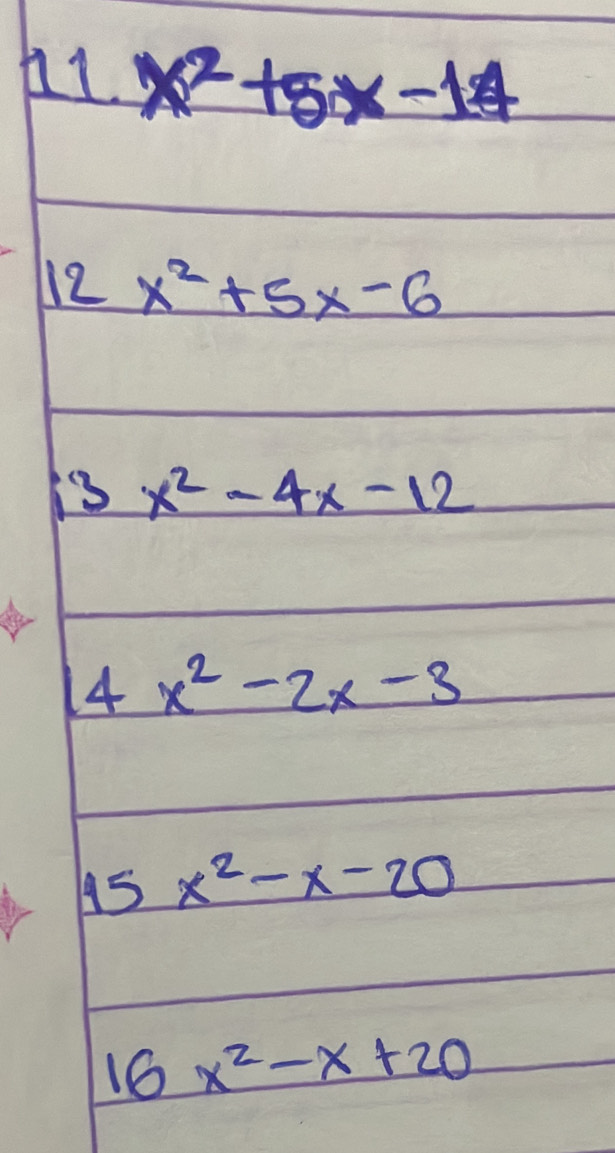 11. x² + 5x - 14
12 x² + 5x - 6
13 x² - 4x - 12
14 x² - 2x - 3
15 x² - x - 20
16 x² - x + 20